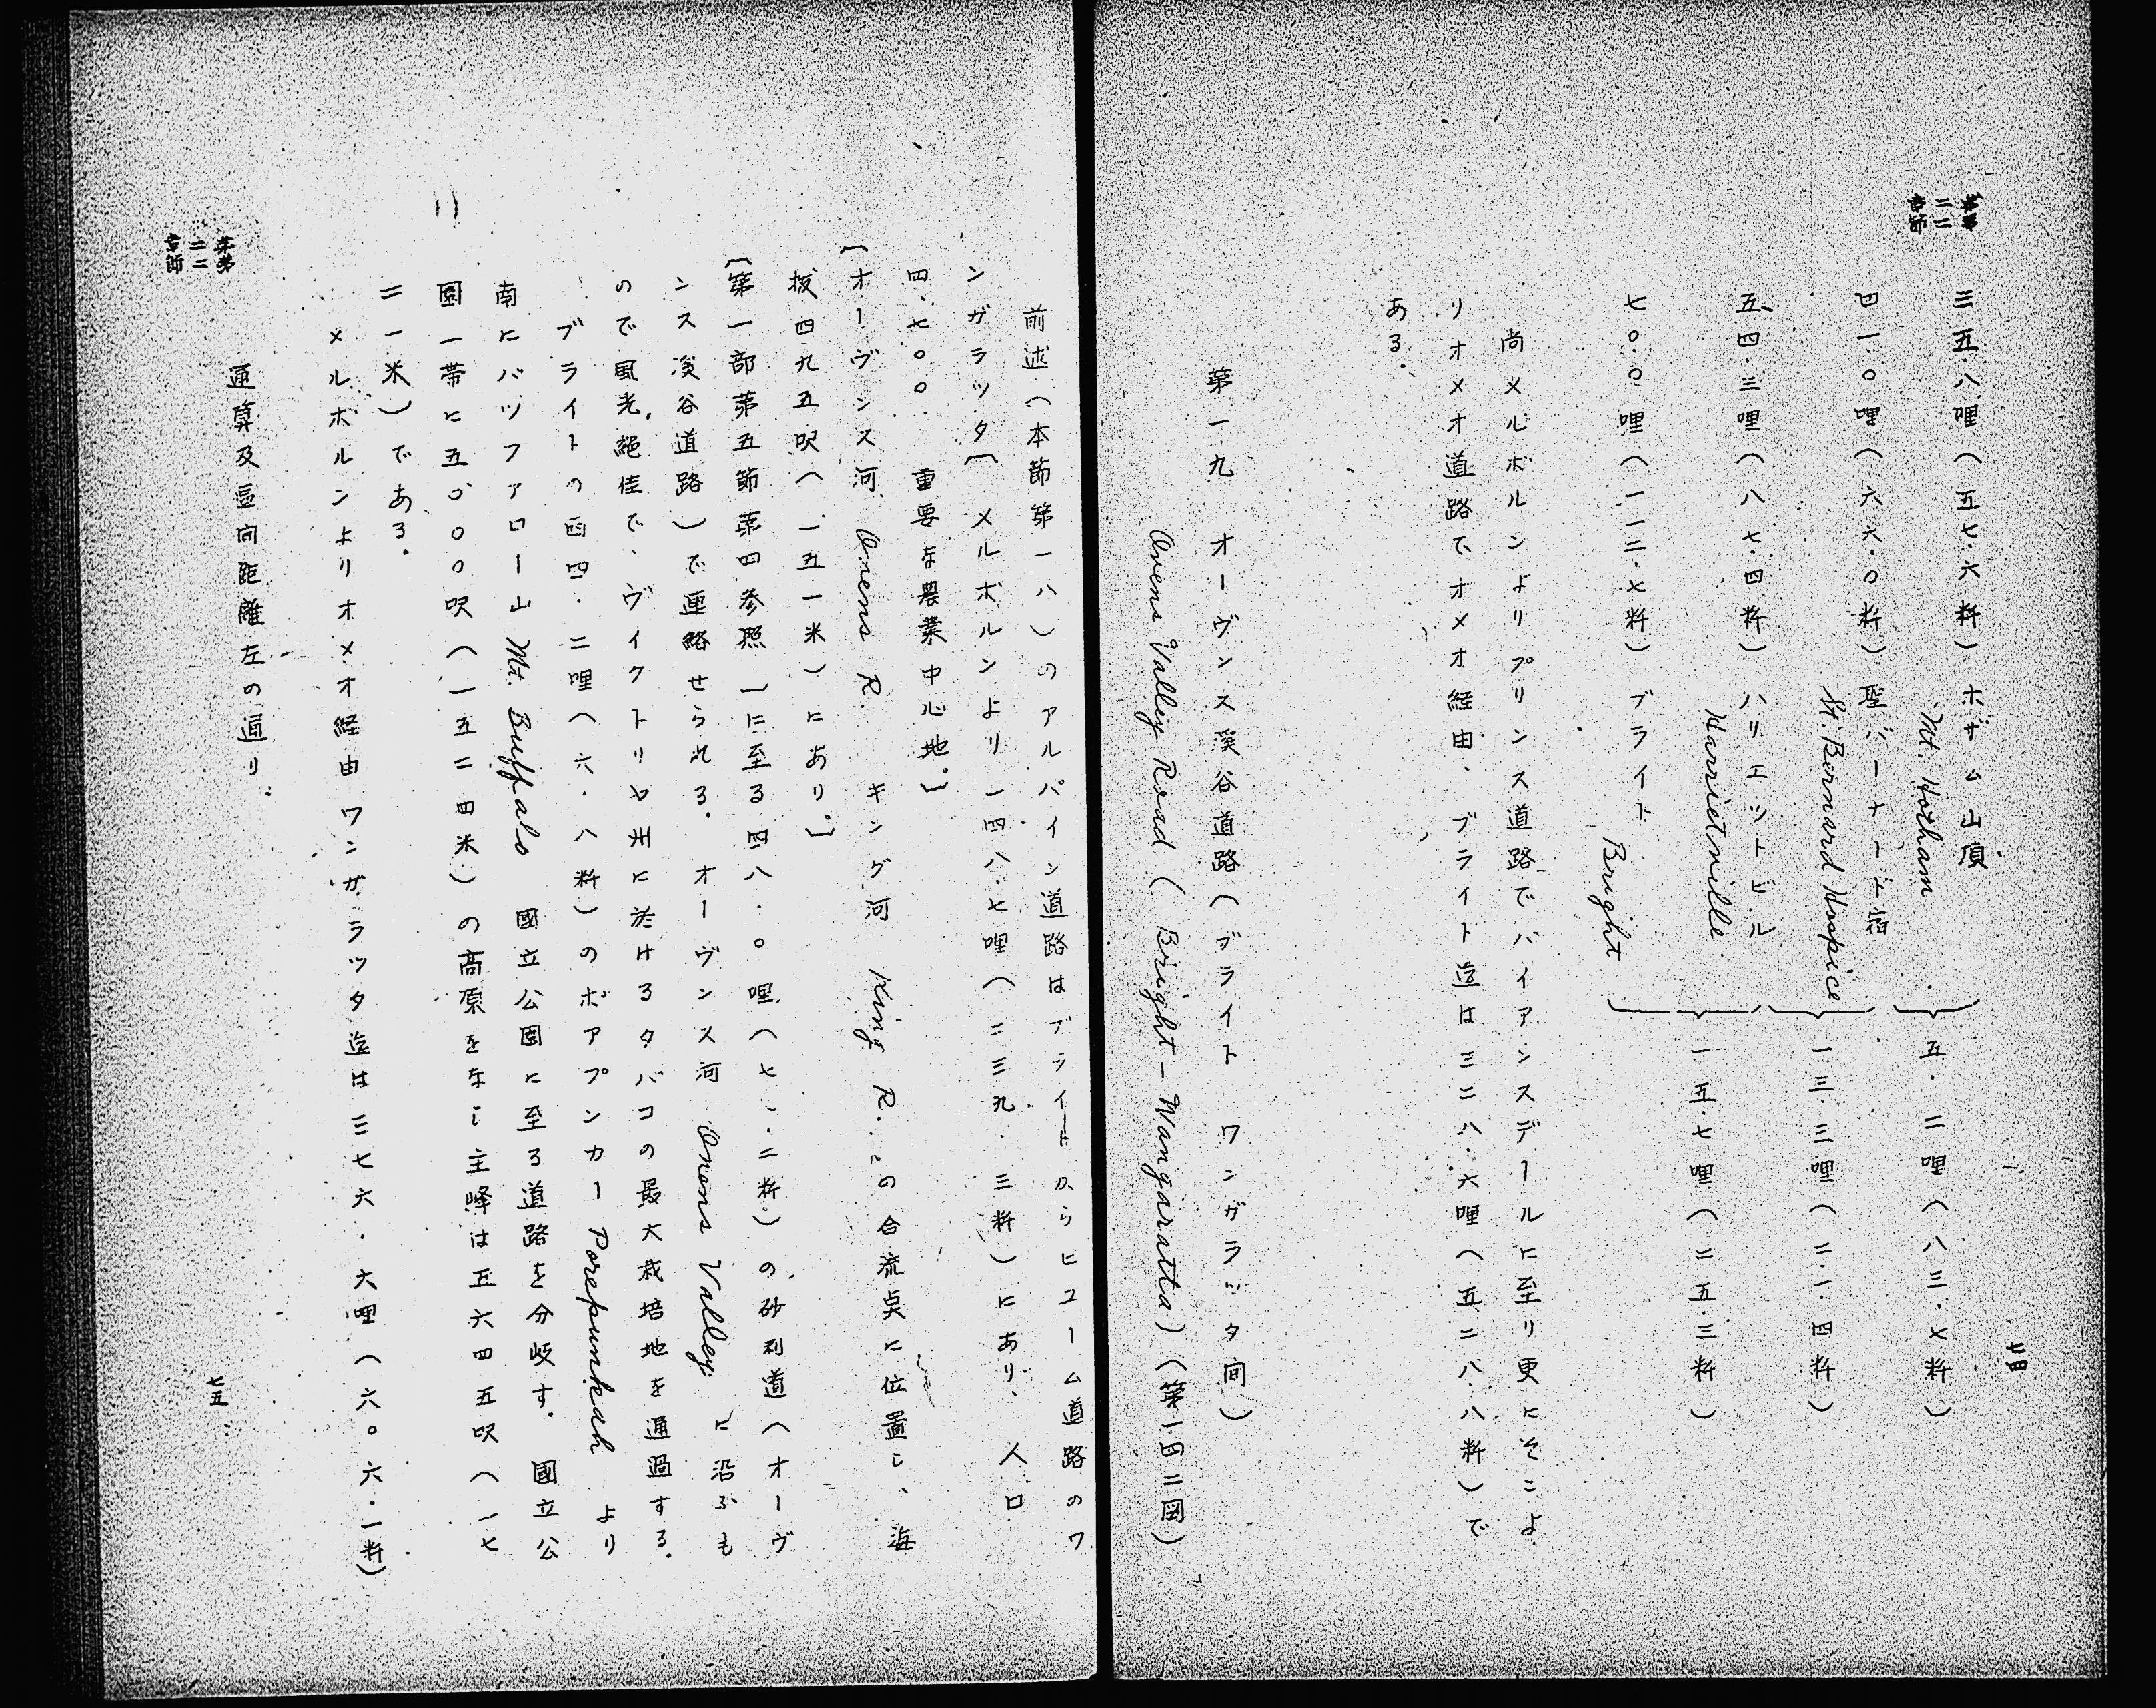 七四
三五.八哩(五七.六粁)ホザム山頂
Mt. Hotham
五.二哩(八三.七粁)
四一.〇哩(六六.〇粁)聖バーナード宿
St. Bernard Hospice
一三.三哩(二一.四粁)
五四.三哩(八七.四粁)ハリエツトビル
Harrietville
一五.七哩(二五.三粁)
七〇.〇哩(一一二.七粁)ブライト
Bright
尚メルボルンよりプリンス道路でバイアンスデールに至り更にそこよ
リオメオ道路でオメオ経由、ブライト迄は三二八.六哩(五二八.八粁)で
ある.
第一九 オーヴンス溪谷道路(ブライト ワンガラッタ间)
Ovens Valley Road (Bright-Wangaratta)(第一四二図)
前述(本節第一八)のアルパイン道路はブライトからヒユーム道路のワ
ンガラツタ〔メルボルンより一四八.七哩(二三九.三粁)にあり、人口
四、七〇〇. 重要な農業中心地。〕
〔オーヴンス河 Ovens R. キング河 King R. の合流点に位置し、海
拔四九五呎(一五一米)にあり。〕
〔第一部第五節第四参照〕に至る四八.〇哩(七七.二粁)の砂利道(オーヴ
ンス溪谷道路)で連絡せられる. オーヴンス河 Ovens Valley に沿ふも
ので風光絕佳で、ヴイクトリヤ州に於けるタバコの最大栽培地を通過する.
ブライトの西四.二哩(六.八粁)のポアプンカー Porepunkah より
南にバツフアロー山 Mt. Buffalo 國立公園に至る道路を分岐す. 國立公
園一帯に五、〇〇〇呎(一五二四米)の高原をなし主峰は五六四五呎(一七
二一米)である.
メルボルンよりオメオ経由ワンガラツタ迄は三七六.六哩(六〇六.一粁)
通算及區间距離左の通り.
七五